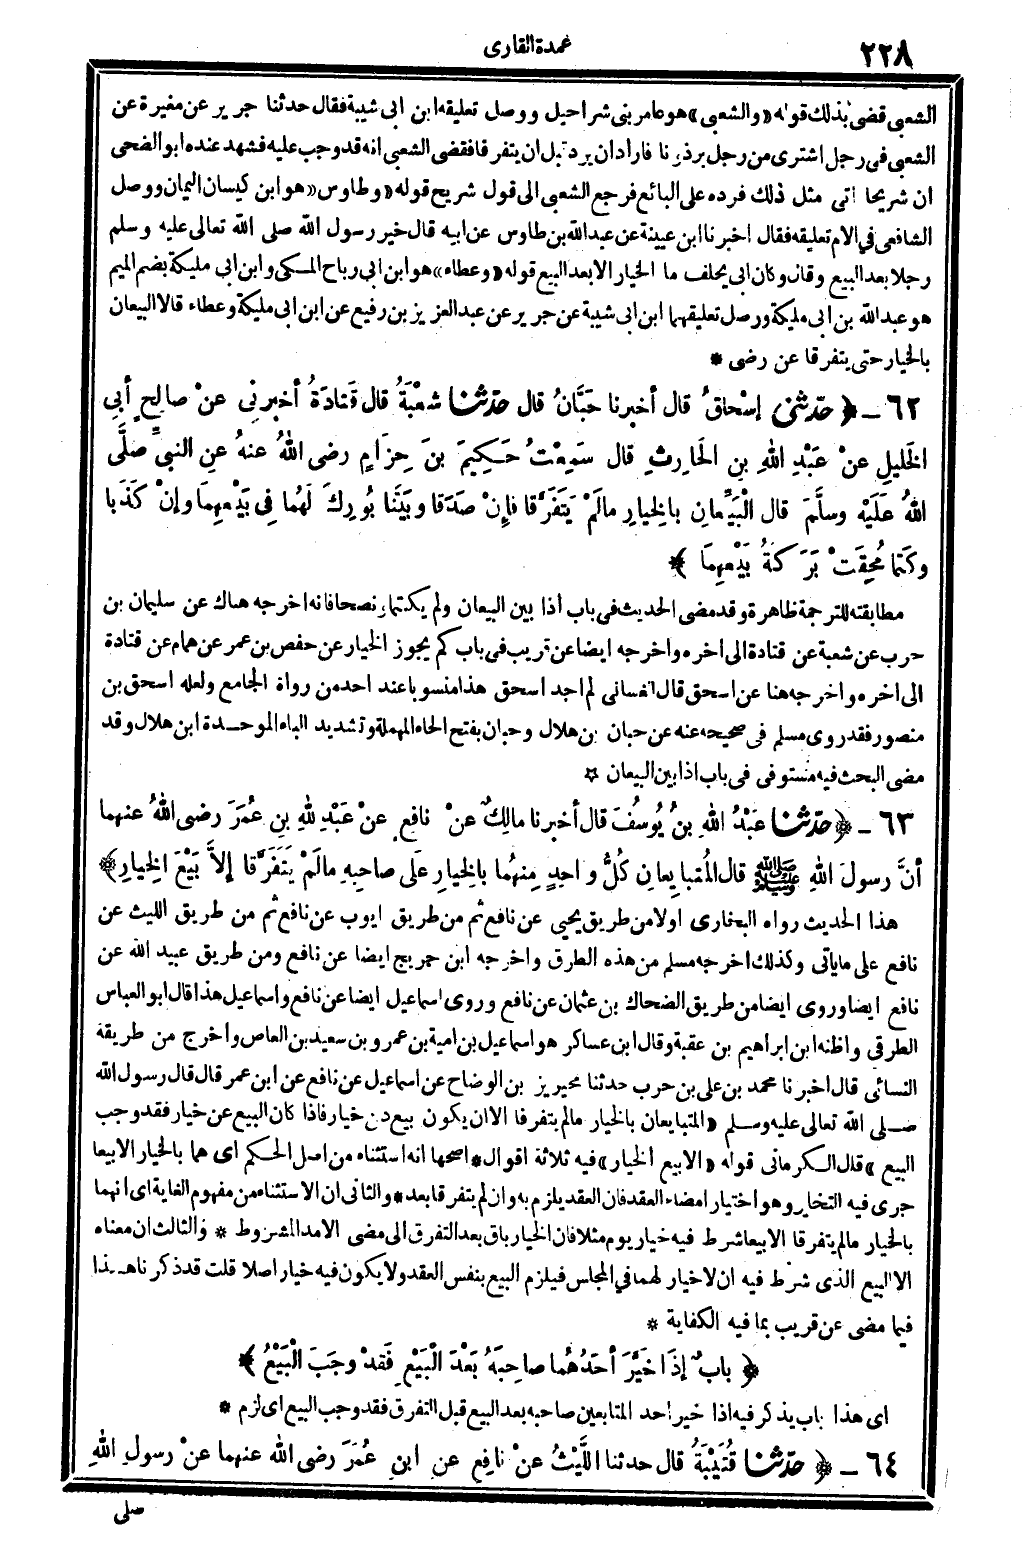 ٢٢٨
عمدة القارى
الشعبى قضى بذلك قوله «والشعبى» هو عامر بنى شراحيل ووصل تعليقه ابن ابى شيبة فقال حدثنا جرير عن مغيرة عن
الشعبى فى رجل اشترى من رجل برذونا فاراد ان يرد قبل ان يتفرقا فقضى الشعبى انه قد وجب عليه فشهد عنده ابو الضحى
ان شريحا اتى مثل ذلك فرده على البائع فرجع الشعبى الى قول شريح قوله «وطاوس» هو ابن كيسان اليمان ووصل
الشافعى فى الام تعليقه فقال اخبرنا ابن عيينة عن عبد الله بن طاوس عن ابيه قال خير رسول الله صلى الله تعالى عليه وسلم
رجلا بعد البيع وقال وكان ابى يحلف ما الخيار الا بعد البيع قوله «وعطاء» هو ابن ابى رباح المكى وابن ابى مليكة بضم الميم
هو عبد الله بن ابى مليكة ورصل تعليقهما ابن ابى شيبة عن جرير عن عبد العزيز بن رفيع عن ابن ابى مليكة وعطاء قالا البيعان
بالخيار حتى يتفرقا عن رضى *
٦٢ ـ ﴿ حدّثنى إسْحاقُ قال أخبرنا حَبَّانُ قال حدّثنا شعْبَةُ قال قَتادَةُ أخبرنى عنْ صالِحٍ أبِى
الخَلِيلِ عنْ عَبْدِ اللهِ بنِ الحَارِثِ قال سَمِعْتُ حَكِيمَ بنَ حِزَامٍ رضى اللهُ عنهُ عنِ النبىِّ صلَّى
اللهُ عَلَيْهِ وسلَّمَ قال الْبَيِّعانِ بالخِيارِ مالَمْ يَتَفَرَّقا فإِنْ صدَقا وبَيَّنَا بُورِكَ لَهُما فِى بَيْعِهِمَا وإنْ كَذَبا
وكَتَما مُحِقَتْ بَرَكَةُ بَيْعِهِمَا ﴾
مطابقته للترجمة ظاهرة وقد مضى الحديث فى باب اذا بين البيعان ولم يكتما ونصحا فانه اخرجه هناك عن سليمان بن
حرب عن شعبة عن قتادة الى اخره واخرجه ايضا عن قريب فى باب كم يجوز الخيار عن حفص بن عمر عن همام عن قتادة
الى اخره واخرجه هنا عن اسحق قال الغسانى لم اجد اسحق هذا منسوبا عند احد من رواة الجامع ولعله اسحق بن
منصور فقد روى مسلم فى صحيحه عنه عن حبان بن هلال وحبان بفتح الحاء المهملة وتشديد الباء الموحدة ابن هلال وقد
مضى البحث فيه مستوفى فى باب اذا بين البيعان *
٦٣ ـ ﴿ حدّثنا عبْدُ اللهِ بنُ يُوسُفَ قال أخبرنا مالِكٌ عنْ نافِعٍ عنْ عَبْدِ للهِ بنِ عُمَرَ رضى اللهُ عنهما
أنَّ رسولَ اللهِ ﷺ قال المُتبايِعانِ كُلُّ واحِدٍ مِنهُما بالخِيارِ علَى صاحبِهِ مالَمْ يَتَفَرَّقا إلاَّ بَيْعَ الخِيارِ ﴾
هذا الحديث رواه البخارى اولا من طريق يحيى عن نافع ثم من طريق ايوب عن نافع ثم من طريق الليث عن
نافع على ماياتى وكذلك اخرجه مسلم من هذه الطرق واخرجه ابن جريج ايضا عن نافع ومن طريق عبيد الله عن
نافع ايضا وروى ايضا من طريق الضحاك بن عثمان عن نافع وروى اسماعيل ايضا عن نافع واسماعيل هذا قال ابو العباس
الطرقى واظنه ابن ابراهيم بن عقبة وقال ابن عساكر هو اسماعيل بن امية بن عمرو بن سعيد بن العاص واخرج من طريقه
النسائى قال اخبرنا محمد بن على بن حرب حدثنا محيريز بن الوضاح عن اسماعيل عن نافع عن ابن عمر قال قال رسول الله
صلى الله تعالى عليه وسلم «المتبايعان بالخيار مالم يتفرقا الا ان يكون بيع عن خيار فاذا كان البيع عن خيار فقد وجب
البيع» قال الكرمانى قوله «الا بيع الخيار» فيه ثلاثة اقوال * اصحها انه استثناء من اصل الحكم اى هما بالخيار الا بيعا
جرى فيه التخاير وهو اختيار امضاء العقد فان العقد يلزم به وان لم يتفرقا بعد * والثانى ان الاستثناء من مفهوم الغاية اى انهما
بالخيار مالم يتفرقا الا بيعا شرط فيه خيار يوم مثلا فان الخيار باق بعد التفرق الى مضى الامد المشروط * والثالث ان معناه
الا البيع الذى شرط فيه ان لا خيار لهما فى المجلس فيلزم البيع بنفس العقد ولا يكون فيه خيار اصلا قلت قد ذكرنا هذا
فيما مضى عن قريب بما فيه الكفاية *
﴿ بابٌ إذَا خَيَّرَ أحَدُهُما صاحِبَهُ بَعْدَ الْبَيْعِ فَقدْ وجَبَ الْبَيْعُ ﴾
اى هذا باب يذكر فيه اذا خير احد المتابعين صاحبه بعد البيع قبل التفرق فقد وجب البيع اى لزم *
٦٤ ـ ﴿ حدّثنا قُتَيْبَةُ قال حدثنا اللَّيْثُ عنْ نافِعٍ عنِ ابنِ عُمَرَ رضى الله عنهما عنْ رسولِ اللهِ
صلى